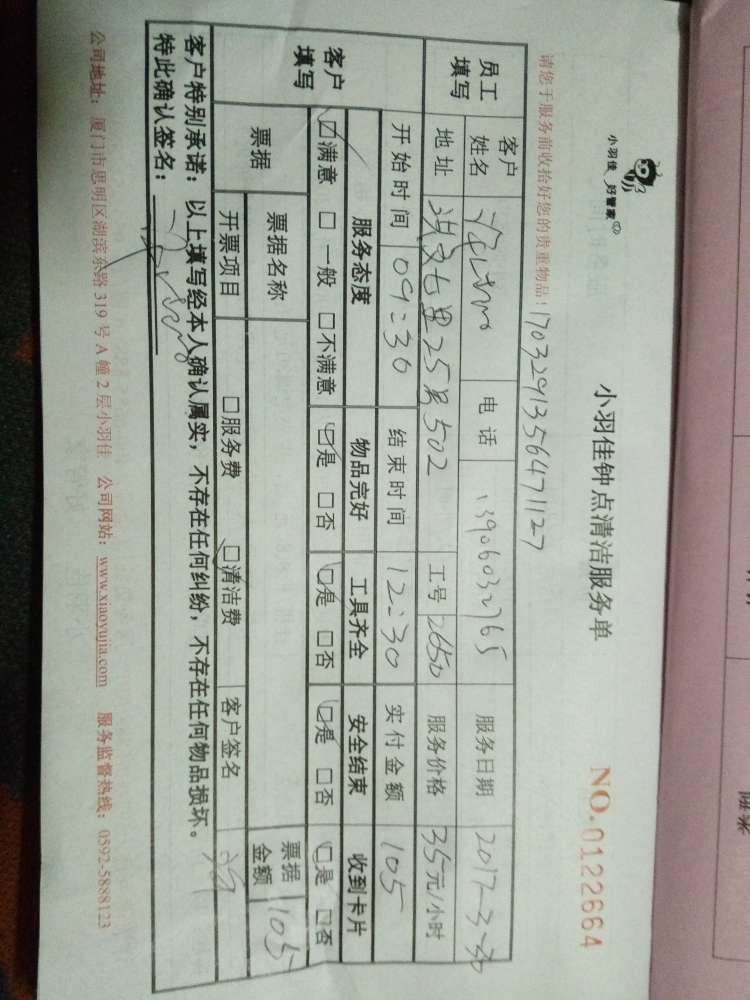 小羽佳 好管家
小羽佳钟点清洁服务单
NO.0122664
请您于服务前收拾好您的贵重物品！
1703291356471127
员工填写
客户姓名
电话 13906032765
服务日期 2017-3-30
地址 洪文七里25号502
工号 2650
服务价格 35元/小时
客户填写
开始时间 09:30
结束时间 12:30
实付金额 105
服务态度 物品完好 工具齐全 安全结束 收到卡片
☑满意 □一般 □不满意 ☑是 □否 ☑是 □否 ☑是 □否 ☑是 □否
票据
票据名称
票据金额 105
开票项目 □服务费 ☑清洁费
客户签名
客户特别承诺：以上填写经本人确认属实，不存在任何纠纷，不存在任何物品损坏。
特此确认签名：
公司地址：厦门市思明区湖滨东路319号A幢2层小羽佳 公司网站：www.xiaoyujia.com 服务监督热线：0592-5888123